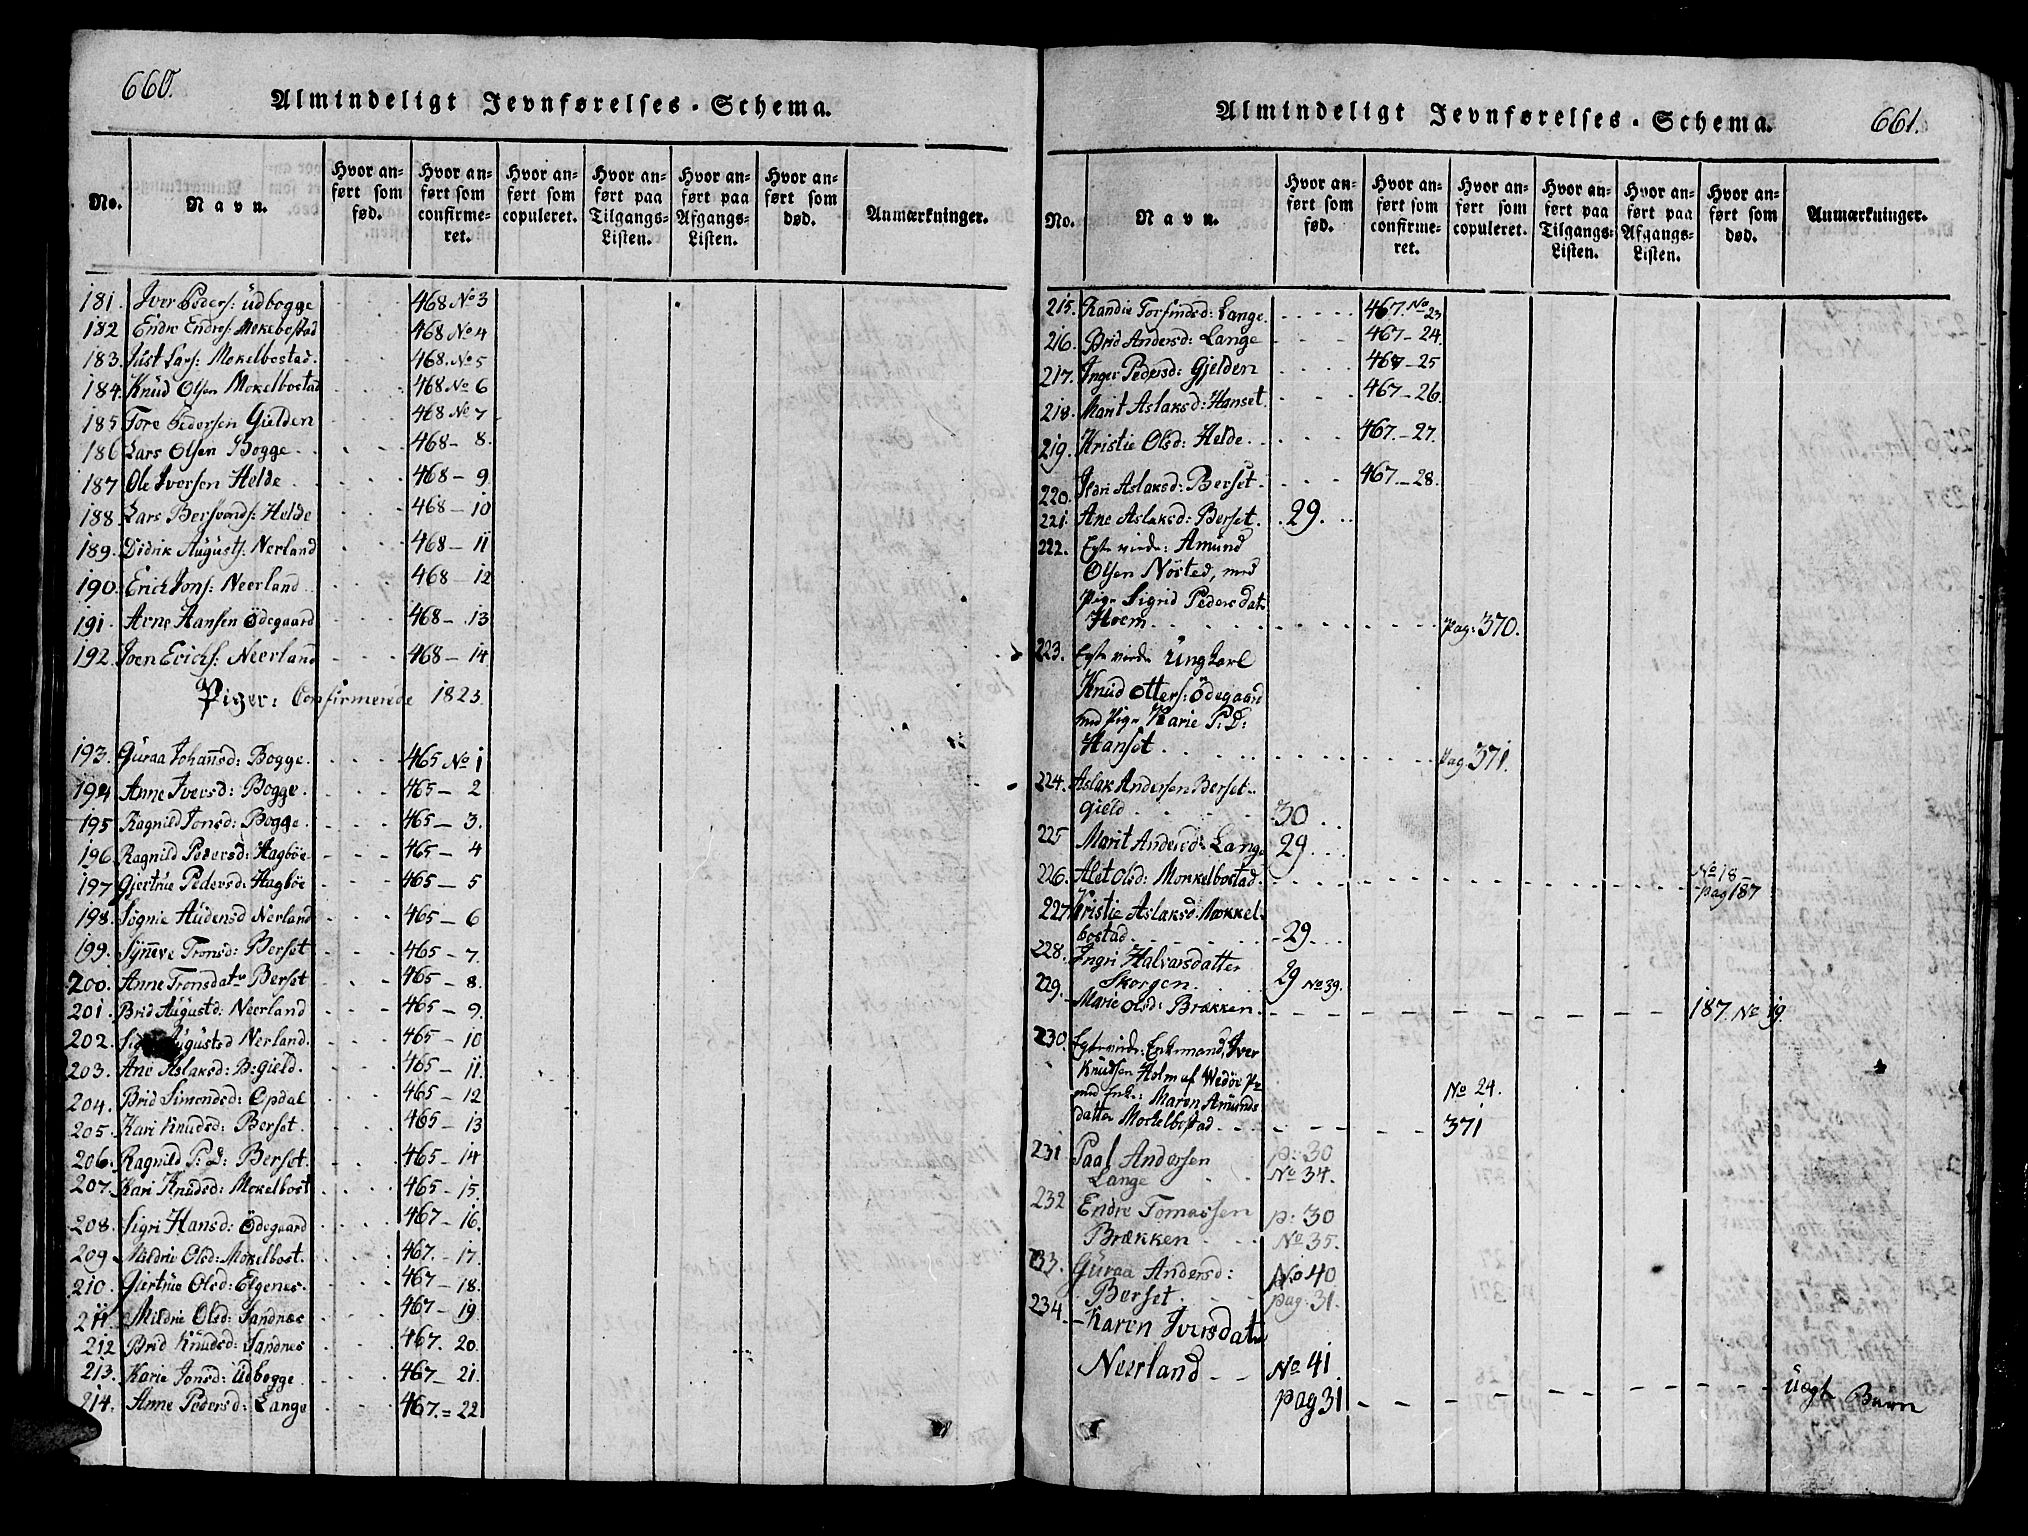 660.
Almindeligt Jevnførelses-Schema.
No.
Navn.
Hvor anført som fød.
Hvor anført som confirmeret.
Hvor anført som copuleret.
Hvor anført paa Tilgangs-Listen.
Hvor anført paa Afgangs-Listen.
Hvor anført som død.
Anmærkninger.
181. Iver Peders: Üdbogge 468 No 3
182 Endre Endres: Mokelbostad 468 No 4
183. Just Lars: Mokelbostad. 468. No 5
184. Knüd Olsen Mokelbostad 468 No 6
185 Tore Pedersen Gielden 468 No 7
186 Lars Olsen Bogge 468 - 8.
187 Ole Iversen Helde 468 - 9
188 Lars Bersvends: Helde 468 - 10
189. Didrik Augusts: Nerland 468 - 11
190. Erich Jons: Neerland 468 - 12
191. Arne Hansen Ödegaard 468 - 13
192. Iven Erichs: Neerland 468 - 14
Piger: Confirmerede 1823.
193. Guraa Johansd: Bogge. 465 No 1
194 Anne Iversd: Bogge. 465 - 2
195 Ragnild Jonsd: Bogge. 465 - 3.
196 Ragnild Pedersd: Hagböe 465 - 4
197 Gjertrüe Pedersd: Hagböe 465 - 5
198. Signie Audensd Nerland 465 - 6
199. Synneve Tronsd: Berset 465 - 7.
200. Anne Tronsdatr Berset 465 - 8.
201. Brid Augustd: Neerland 465 - 9.
202. Augustsd Nerland. 465 - 10
203. Ane Aslaksd: B: gield. 465 - 11.
204. Brid Simensd: Opdal 465 - 12
205. Kari Knudsd: Berset. 465 - 13
206. Ragnild P: D: Berset. 465 - 14
207. Kari Knudsd: Mokelbost 465 - 15.
208. Sigri Hansd: Ödegaard 467 - 16.
209 Mildrie Olsd: Mokelbost. 467. - 17.
210. Gjertrüe Olsd: Elgenes. 467 - 18.
211. Mildrie Olsd: Sandnes 467 - 19
212 Brid Knudsd: Sandnes 467. 20.
213. Karie Jonsd: Üdbogge 467 - 21.
214. Anne Pedersd: Lange 467. = 22
Almindeligt Jevnførelses-Schema.
661.
No.
Navn.
Hvor anført som fød.
Hvor anført som confirmeret.
Hvor anført som copuleret.
Hvor anført paa Tilgangs-Listen.
Hvor anført paa Afgangs-Listen.
Hvor anført som død.
Anmærkninger.
215. Randie Torfindsd: Lange. 467. No 23
216. Brid Andersd: Lange 467 - 24.
217. Inger Pedersd: Gjelden 467 - 25
218. Marit Aslaksd: Hanset. 467 - 26.
219. Kristie Olsd: Helde. 467. - 27.
220. Ildri Aslaksd: Berset. 467. - 28.
221. Ane Aslaksd: Berset. 29.
222. Egte viede: Amund
Olsen Nösted, med
Pige Sigrid Pedersdatr
Hoem. Pag: 370.
223. Egte viede Ungkarl
Knüd Otters: Ödegaard
med Pige Karie P: D:
Hanset. Pag 371.
224. Aslak Andersen Berset-
gield 30
225 Marit Andersd: Lange 29.
226. Alet Olsd: Monkelbostad. No 18 -
pag 187
227. Kristie Aslaksd: Mokkel-
bostad. 29.
228. Ingri Halvarsdatter
Skorgen. 29 No 39.
229. Marie Olsd: Brækken. 187. No 19.
230. Egteviede: Enkemand, Iver
Knudsen Holm af Wedöe Pr:
med Enke: Maren Amunds No 24.
datter Mokelbostad 371
231 Paal Andersen p: 30
Lange No 34.
232 Endre Tomassen p: 30
Brækken No 35.
233. Guraa Andersd: No 40
Berset. pag: 31.
234. Karen Iversdatr
Neerland No 41.
pag 31
üegt Barn